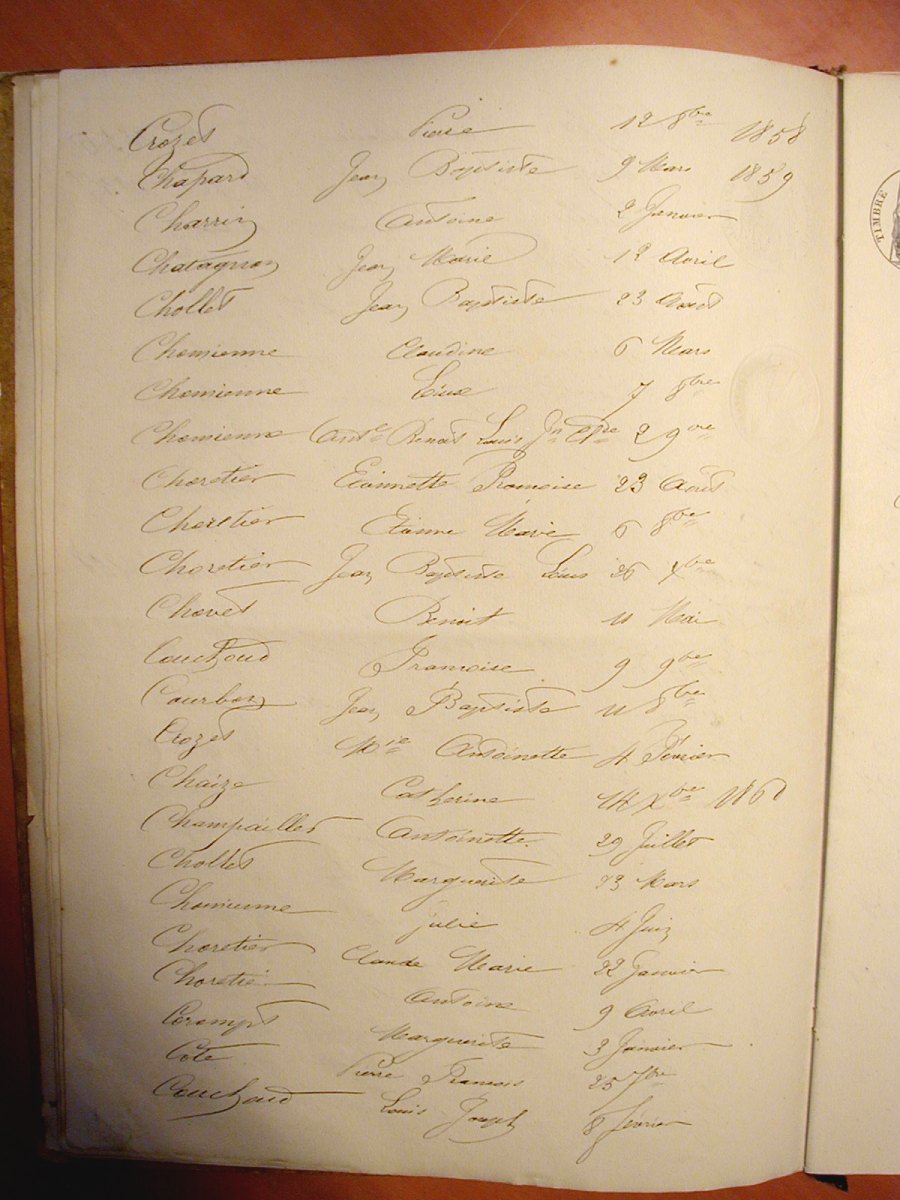 Crozet Pierre 12 8bre 1858
Chapard Jean Baptiste 9 Mars 1859
Charrin Antoine 2 Janvier
Chatagnon Jean Marie 12 Avril
Chollet Jean Baptiste 23 Août
Chomienne Claudine 6 Mars
Chomienne 7 8bre
Chomienne Antne Benoit Louis Jn 2 9bre
Choretier Etiennette Françoise 23 Août
Choretier Etienne Marie 6 8bre
Choretier Jean Baptiste Louis 26 Xbre
Chovet Benoit 11 Mai
Couchoud Françoise 9 9bre
Courbon Jean Baptiste 11 8bre
Crozet Mie Antoinette 4 Février
Chaize Catherine 14 Xbre 1860
Champaillet Antoinette 29 Juillet
Chollet Marguerite 23 Mars
Chomienne Julie 4 Juin
Choretier Claude Marie 22 Janvier
Choretier Antoine 9 Avril
Corompt Marguerite 3 Janvier
Cote Pierre François 25 7bre
Couchoud Louis Joseph 8 février
TIMBRE